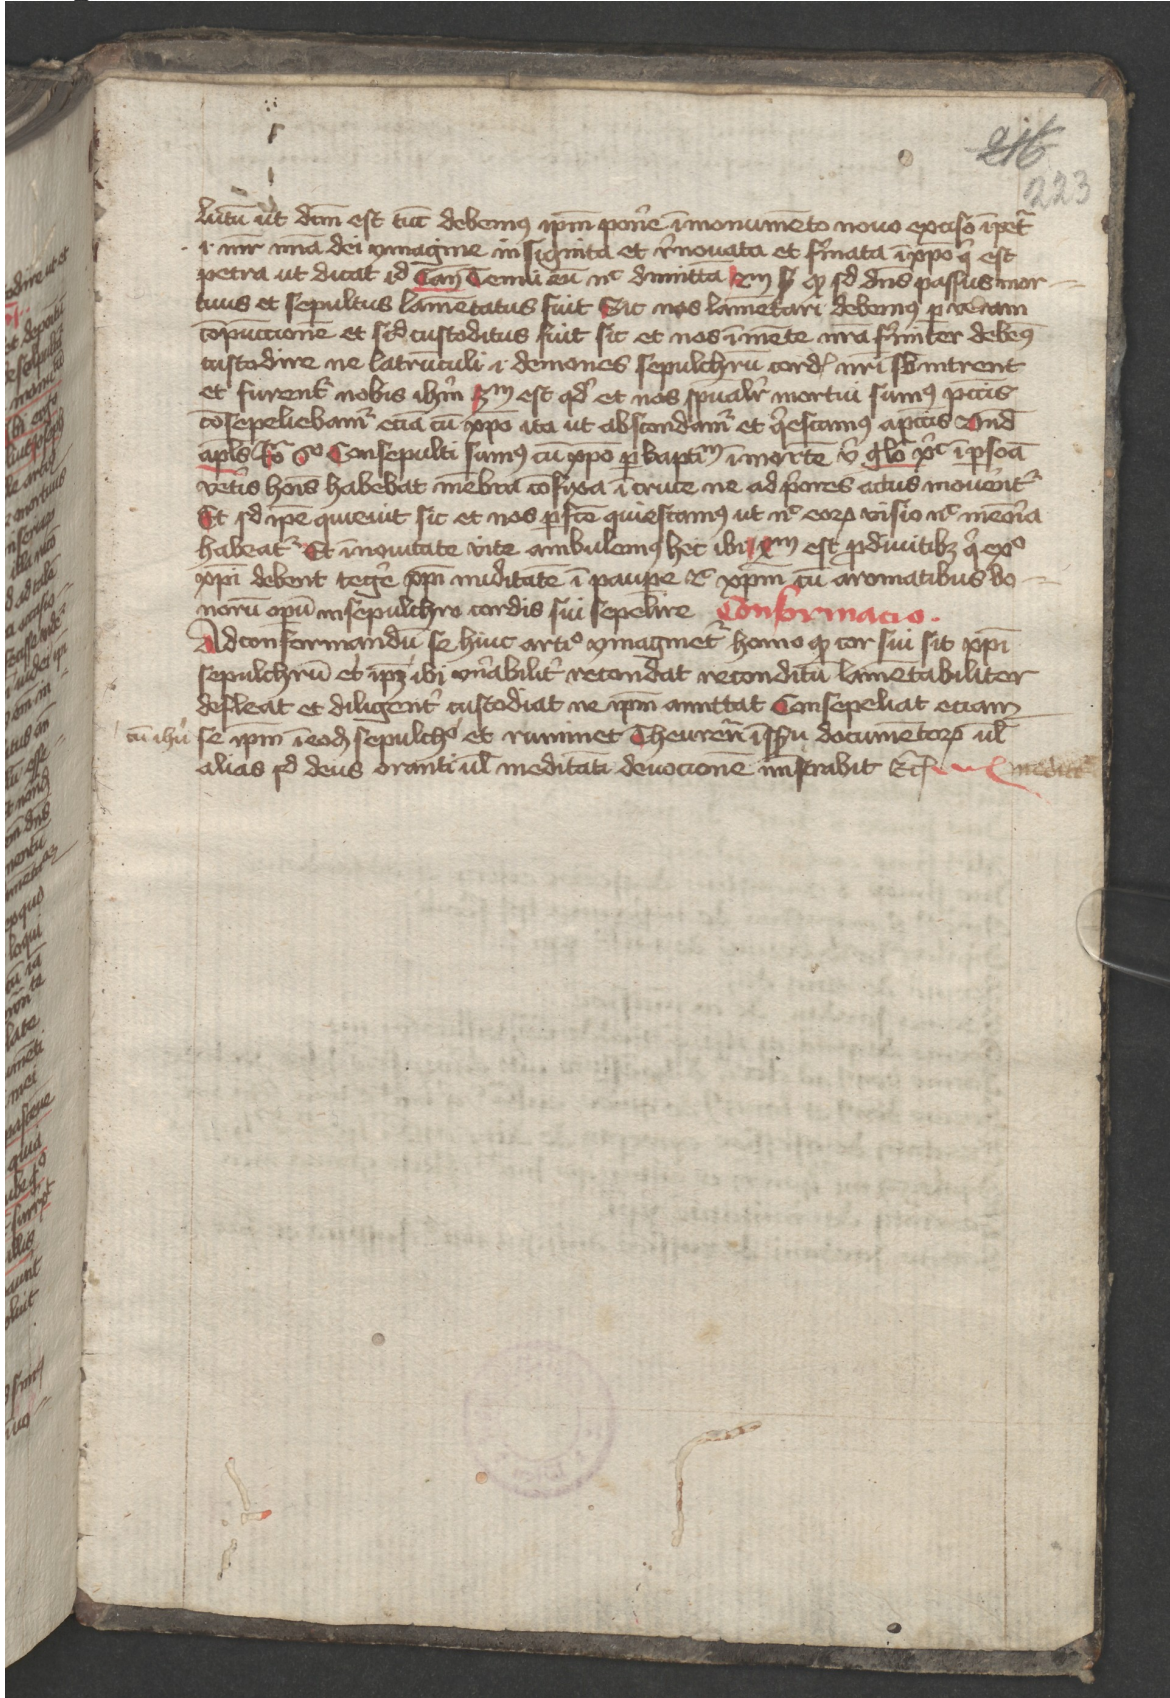 216
223
lutū ut dc̄m est tūc debemꝰ ip̄m pon̄e ī monumēto novo exciso ī pet̄
.i. mēte n̄ra dei ymagine insignita et r̄novata et f̄mata ī xp̄o q̄ est
petra ut dicat id Can̄ Tenui eū nᶜ dimittā sꝫ sꝫ qꝫ sꝫ dn̄s passus mor
tuus et sepultus lamētatus fuit Sic nos lamētari debemꝰ ꝑ veram
cōpūccionē et sic custoditus fuit sic et nos ī mente nr̄a f̄miter debemꝰ
custodire ne latrūculi .i. demones sepulchrū cord̄ nr̄i sb̄intrent
et furent᷑ nobis ihm̄ est qd̄ et nos spūalr̄ mortui sumꝰ pc̄cis
cōsepeliebam᷑ eciā cū xp̄o ita ut abscondam᷑ et q̄escamꝰ a pc̄cis Und̄
apl̄s Ro Consepulti sumꝰ cū xp̄o ꝑ baptiᵐ ī mortē glo ī ꝑsoā
vet̄is hois habebat mēbra cōfixa ī cruce ne ad p̄ores actus movent᷑
Et sic ip̄e quievit sic et nos ꝑfcē quiescamꝰ ut nᶜ eoꝝ visio nᶜ mēoria
habeat᷑ Et ī novitate vite ambulemꝰ hec ibi est ꝓ divitibꝫ q̄ exº
xp̄i debent teḡe xp̄i nuditatē ī paupe xp̄m cū aromatibus bo
norū opū in sepulchro cordis sui sepelire Conformacio.
Ad conformandū se huic artiº ymaginet᷑ homo qꝫ cor sui sit xp̄i
sepulchrū et ip̄ꝫ ibi vn̄abilit̄ recondat reconditū lamētabiliter
defleat et diligent̄ custodiat ne ip̄m amittat Consepeliat eciam
cū ihū se ip̄m ī eodꝫ sepulchº et ruminet Theuren̄ ī sp̄u documētoꝝ ul̄
alias sꝫ deus oranti ul̄ meditāti devocione mīstrabit &c̄